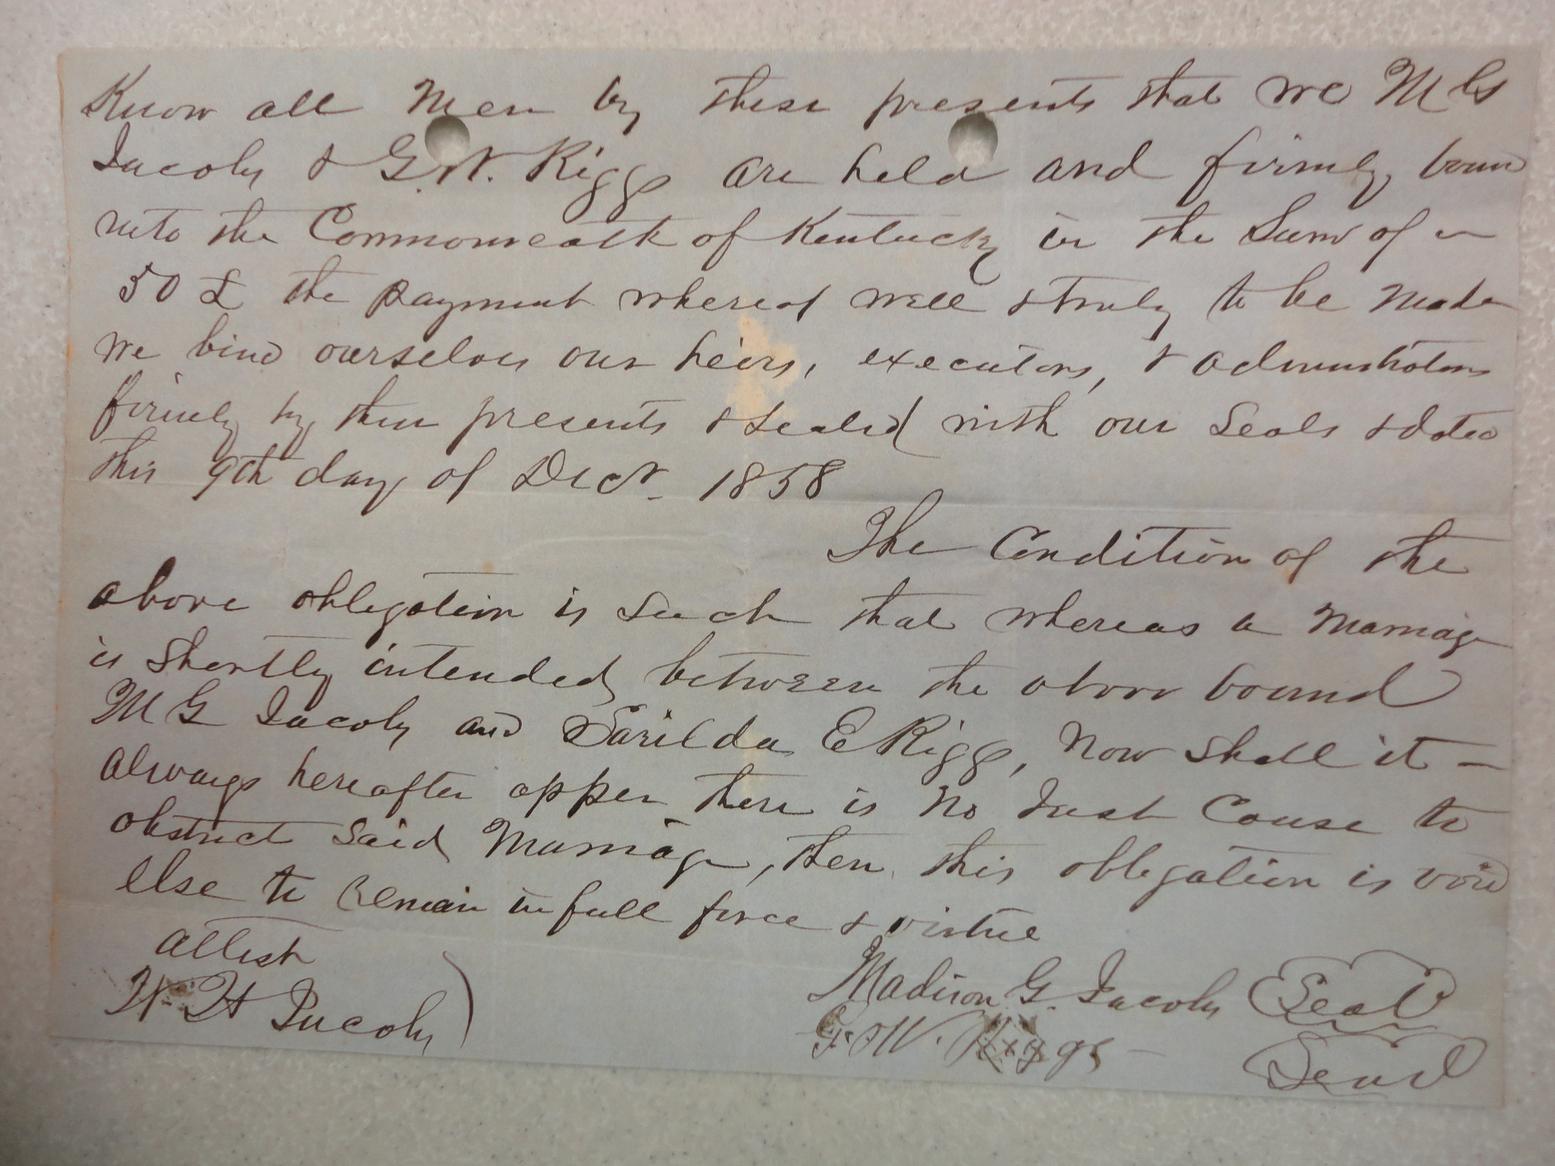 Know all Men by these presents that we M G
Jacoby & G. W. Riggs are held and firmly bound
unto the Commonwealth of Kentucky in the Sum of
50 £ the payment whereof well & truly to be made
We bind ourselves our heirs, executors, & administrators
firmly by these presents & Sealed with our Seals & dated
this 9th day of Decr. 1858
The Condition of the
above obligation is Such that whereas a Marriage
is Shortly intended between the above bound
M G Jacoby and Sarilda E Riggs, Now Shall it -
always hereafter apper there is No Just Cause to
obstruct Said Marriage, then this obligation is void
Else to Remain in full force & virtue
Attest
W H Jacoby
Madison G. Jacoby Seal
G W. Riggs Seal